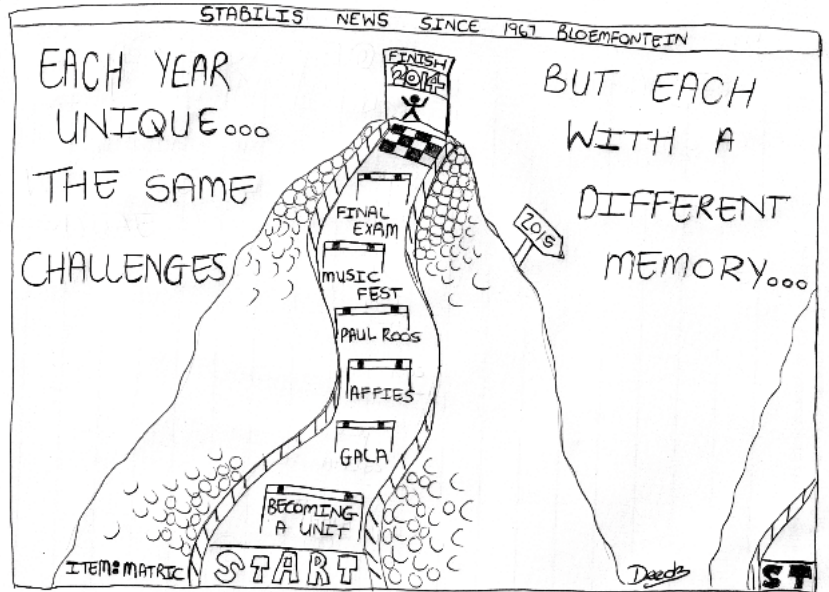 STABILIS NEWS SINCE 1967 BLOEMFONTEIN
EACH YEAR
UNIQUE...
THE SAME
CHALLENGES
FINISH
2014
BUT EACH
WITH A
DIFFERENT
MEMORY...
2015
FINAL
EXAM
MUSIC
FEST
PAUL ROOS
AFFIES
GALA
BECOMING
A UNIT
START
ITEM: MATRIC
Deedz
ST